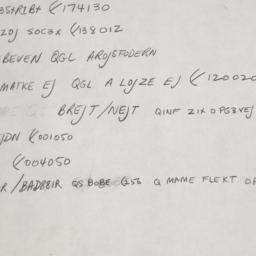 BSTRIBT (/174130
ZOJ SOC3X (/138012
BEVEN QGL AROJSFODERN
MATKE EJ QGL A LOJZE EJ (/120020
BREJT/NEJT QINF ZIX OPGBYEJ
JDN (/001050
(/004050
R/BAD88IR QS BOBE Q56 Q MAME FLEKT